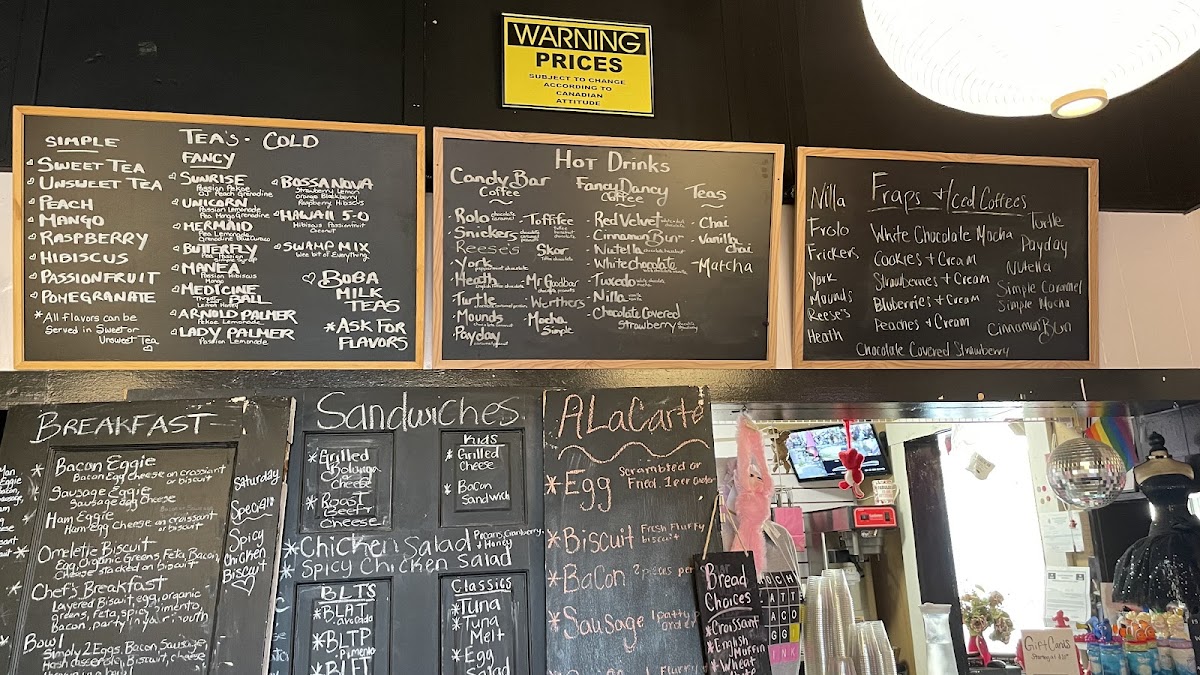 WARNING
PRICES
SUBJECT TO CHANGE
ACCORDING TO
CANADIAN
ATTITUDE
TEA'S - COLD
SIMPLE
SWEET TEA
UNSWEET TEA
PEACH
MANGO
RASPBERRY
HIBISCUS
PASSIONFRUIT
POMEGRANATE
*All flavors can be
served in Sweet or
Unsweet Tea
FANCY
SUNRISE
OJ Peach Grenadine
UNICORN
Passion Lemonade
Pea Mango Grenadine
MERMAID
Pea Lemonade
BUTTERFLY
MANEA
Passion Hibiscus
Mango
MEDICINE
BALL
Lemon Honey
ARNOLD PALMER
Pekoe Lemonade
LADY PALMER
Passion Lemonade
BOSSA NOVA
Strawberry Lemon
Orange Blackberry
Raspberry Hibiscus
HAWAII 5-0
Hibiscus Passionfruit
Coconut
SWAMP MIX
Wee bit of Everything
BOBA
MILK
TEAS
*ASK FOR
FLAVORS
HOT DRINKS
Candy Bar
Coffee
Rolo chocolate caramel
Snickers
Reese's
York peppermint chocolate
Heath
Turtle
Mounds
Payday
Toffifee
Skor
Mr. Goodbar
Werthers
Mocha
Simple
Fancy Dancy
Coffee
Red Velvet
Cinnamon Bun
Nutella
White chocolate
Tuxedo
Nilla
Chocolate Covered
Strawberry
Teas
Chai
Vanilla
Chai
Matcha
Fraps + Iced Coffees
Nilla
Frolo
Frickers
York
Mounds
Reese's
Heath
White Chocolate Mocha
Cookies + Cream
Strawberries + Cream
Bluberries + Cream
Peaches + Cream
Chocolate Covered Strawberry
Turtle
Payday
Nutella
Simple Caramel
Simple Mocha
Cinnamon Bun
BREAKFAST
*Bacon Eggie
Bacon Egg Cheese on crossiant
or biscuit
Sausage Eggie
Sausage egg Cheese
Ham Eggie
Ham egg Cheese on croissant
or biscuit
Omelette Biscuit
Egg, Organic Greens, Feta, Bacon,
Cheese stacked on biscuit
Chef's Breakfast
Layered Biscuit, egg, organic
greens, feta, spicy pimento,
Bacon, party in your mouth
Bowl
Simply 2 Eggs, Bacon, Sausage,
Saturday
Special
Spicy
Chicken
Biscuit
Sandwiches
*Grilled
Bologna
& Cheese
*Roast
Beef &
Cheese
KIDS
*Grilled
Cheese
*Bacon
Sandwich
*Chicken Salad Pecans, Cranberry,
+ Honey
*Spicy Chicken Salad
BLTS
*BLAT
avocado
*BLTP
Pimento
*BLFT
Classics
*Tuna
*Tuna
Melt
*Egg
Salad
ALaCarte
*Egg Scrambled or
Fried. 1 egg order
*Biscuit Fresh Fluffy
biscuit
*BaCon 2 pieces per
*Sausage 1 patty
order
Bread
Choices
*Croissant
*English
Muffin
*Wheat
White
Gift Cards